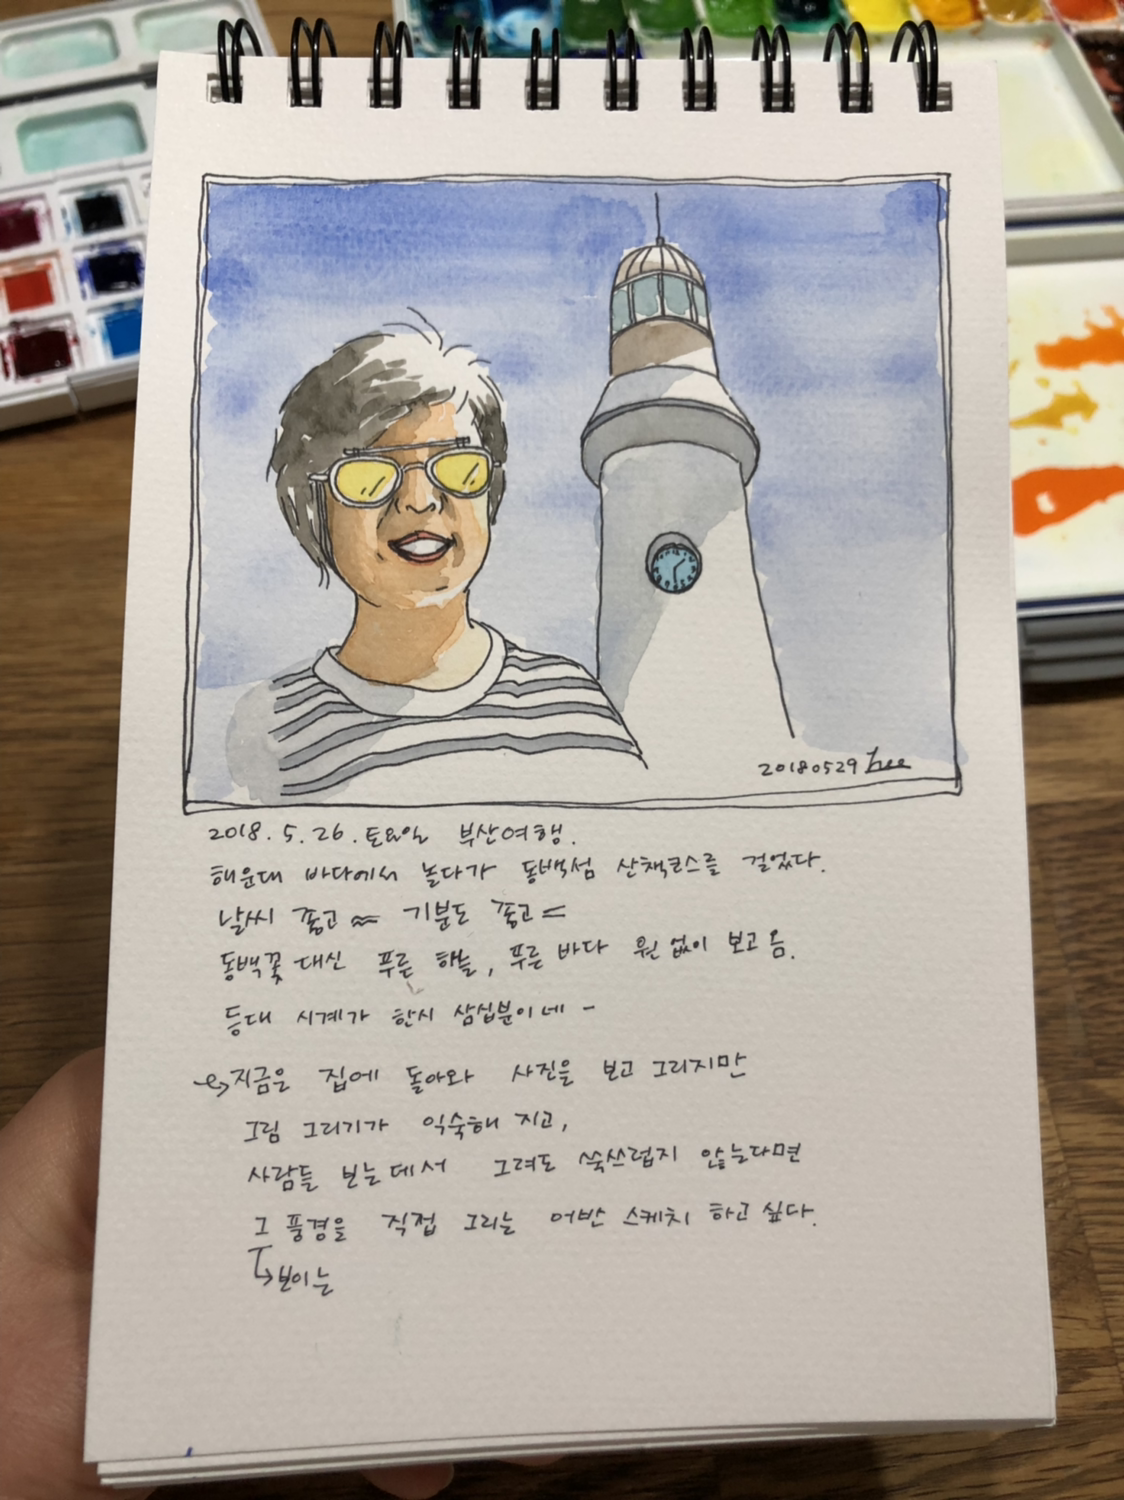 20180529 hee
2018. 5. 26. 토요일 부산여행.
해운대 바다에서 놀다가 동백섬 산책코스를 걸었다.
날씨 좋고≈ 기분도 좋고=
동백꽃 대신 푸른 하늘, 푸른 바다 원 없이 보고 옴.
등대 시계가 한시 삼십분이네 -
지금은 집에 돌아와 사진을 보고 그리지만
그림 그리기가 익숙해 지고,
사람들 보는데서 그려도 쑥쓰럽지 않는다면
그 풍경을 직접 그리는 어반 스케치 하고 싶다.
↳보이는